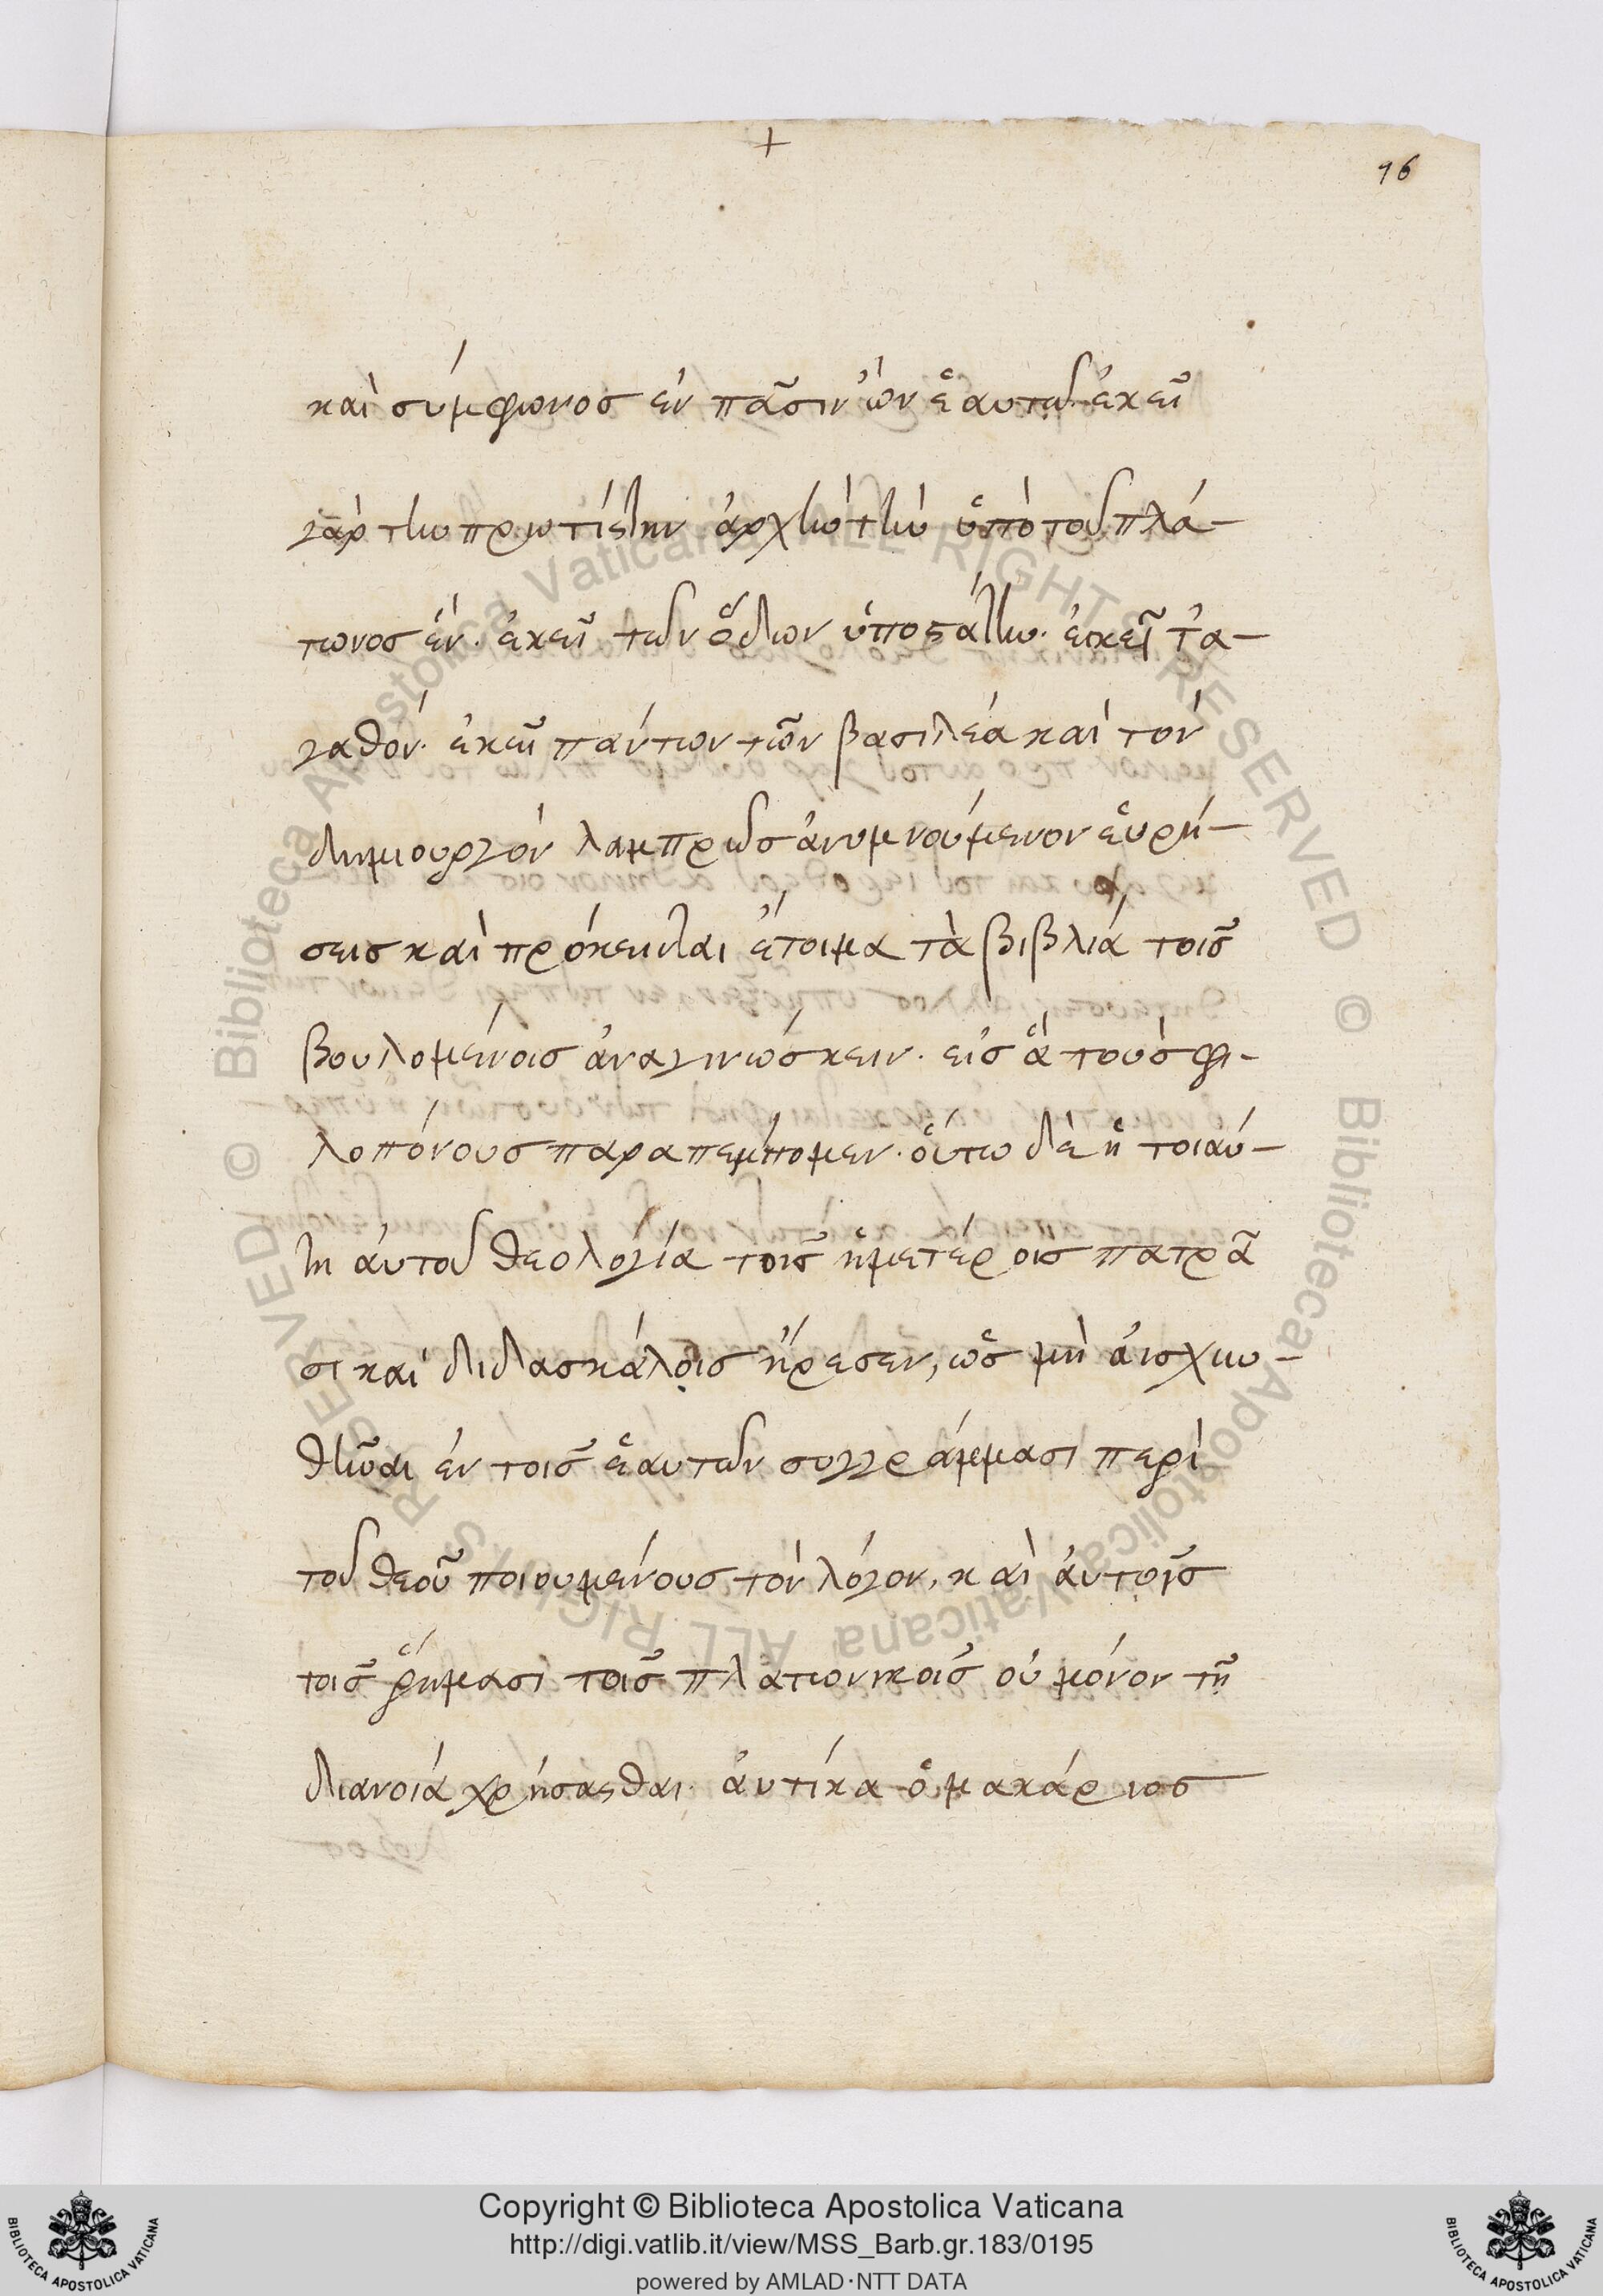 +
96
καὶ σύμφωνος ἐν πᾶσιν ὢν ἑαυτῷ. ἐκεῖ
γὰρ τὴν πρωτίστην ἀρχὴν τὴν ὑπὸ τοῦ πλά-
τωνος ἓν. ἐκεῖ τῶν ὅλων ὑποστάτην. ἐκεῖ τἀ-
γαθόν. ἐκεῖ πάντων τῶν βασιλέα καὶ τὸν
δημιουργὸν λαμπρῶς ἀνυμνούμενον εὑρή-
σεις καὶ πρόκειται ἕτοιμα τὰ βιβλία τοῖς
βουλομένοις ἀναγινώσκειν. εἰς ἃ τοὺς φι-
λοπόνους παραπέμπομεν. οὕτω δὲ ἡ τοιαύ-
τη αὐτοῦ θεολογία τοῖς ἡμετέροις πατρᾶ
σι καὶ διδασκάλοις ἤρεσεν, ὡς μὴ αἰσχυν-
θῆναι ἐν τοῖς ἑαυτῶν συγγράμμασι περὶ
τοῦ θεοῦ ποιουμένους τὸν λόγον, καὶ αὐτοῖς
τοῖς ῥήμασι τοῖς πλατωνικοῖς οὐ μόνον τῇ
διανοίᾳ χρήσασθαι. αὐτίκα ὁ μακάριος
Copyright © Biblioteca Apostolica Vaticana
http://digi.vatlib.it/view/MSS_Barb.gr.183/0195
powered by AMLAD·NTT DATA